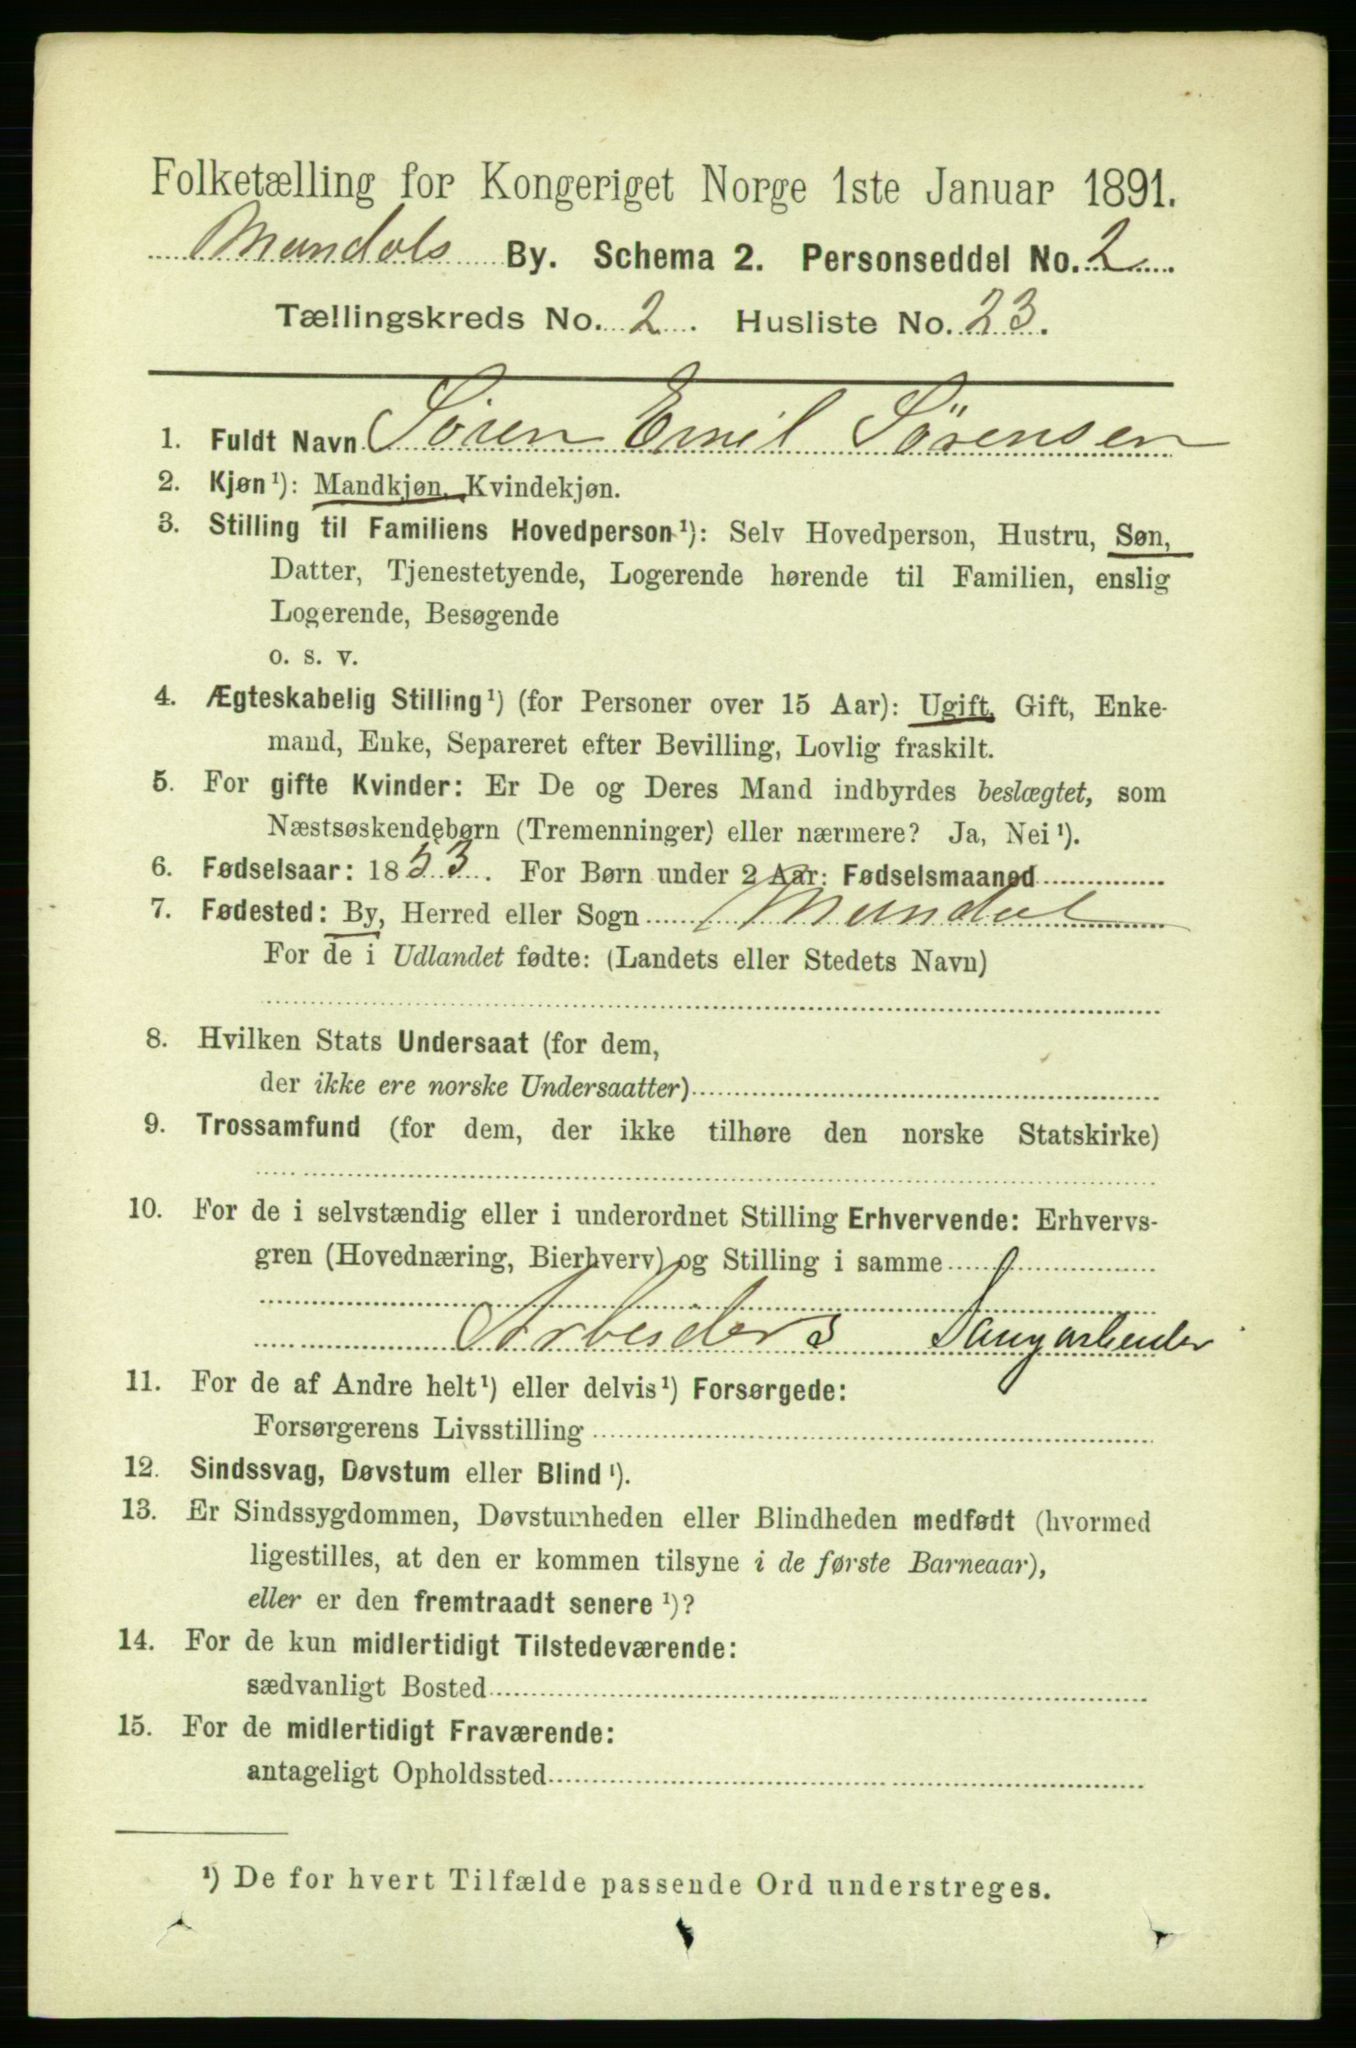 Folketælling for Kongeriget Norge 1ste Januar 1891.
Mandals By. Schema 2. Personseddel No. 2
Tællingskreds No. 2. Husliste No. 23.
1. Fuldt Navn Søren Emil Sørensen
2. Kjøn¹): Mandkjøn, Kvindekjøn.
3. Stilling til Familiens Hovedperson¹): Selv Hovedperson, Hustru, Søn,
Datter, Tjenestetyende, Logerende hørende til Familien, enslig
Logerende, Besøgende
o. s. v.
4. Ægteskabelig Stilling¹) (for Personer over 15 Aar): Ugift, Gift, Enke-
mand, Enke, Separeret efter Bevilling, Lovlig fraskilt.
5. For gifte Kvinder: Er De og Deres Mand indbyrdes beslægtet, som
Næstsøskendebørn (Tremenninger) eller nærmere? Ja, Nei¹).
6. Fødselsaar: 1853. For Børn under 2 Aar: Fødselsmaaned
7. Fødested: By, Herred eller Sogn Mandal
For de i Udlandet fødte: (Landets eller Stedets Navn)
8. Hvilken Stats Undersaat (for dem,
der ikke ere norske Undersaatter)
9. Trossamfund (for dem, der ikke tilhøre den norske Statskirke)
10. For de i selvstændig eller i underordnet Stilling Erhvervende: Erhvervs-
gren (Hovednæring, Bierhverv) og Stilling i samme
Arbeider
11. For de af Andre helt¹) eller delvis¹) Forsørgede:
Forsørgerens Livsstilling
12. Sindssvag, Døvstum eller Blind¹).
13. Er Sindssygdommen, Døvstumheden eller Blindheden medfødt (hvormed
ligestilles, at den er kommen tilsyne i de første Barneaar),
eller er den fremtraadt senere¹)?
14. For de kun midlertidigt Tilstedeværende:
sædvanligt Bosted
15. For de midlertidigt Fraværende:
antageligt Opholdssted
¹) De for hvert Tilfælde passende Ord understreges.